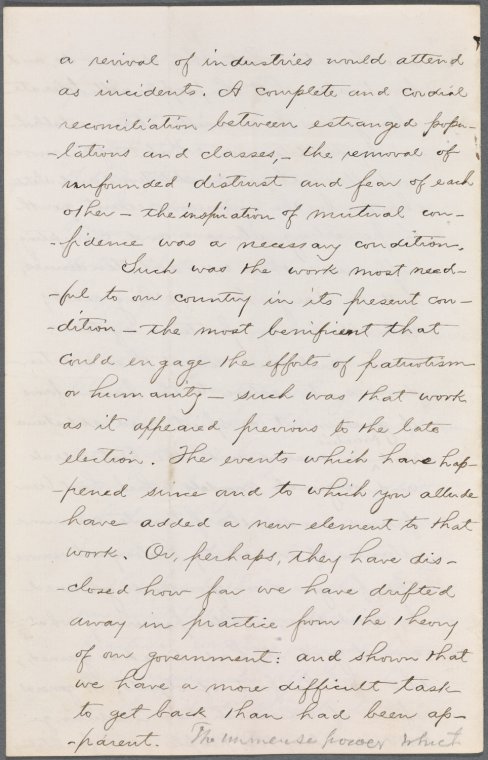 a revival of industries would attend
as incidents. A complete and cordial
reconciliation between estranged popu-
-lations and classes, - the removal of
unfounded distrust and fear of each
other - the inspiration of mutual con-
-fidence was a necessary condition.
Such was the work most need-
-ful to our country in its present con-
-dition - the most benificent that
could engage the efforts of patriotism
or humanity - such was that work
as it appeared previous to the late
election. The events which have hap-
-pened since and to which you allude
have added a new element to that
work. Or, perhaps, they have dis-
-closed how far we have drifted
away in practice from the theory
of our government: and shown that
we have a more difficult task
to get back than had been ap-
-parent. The immense power which